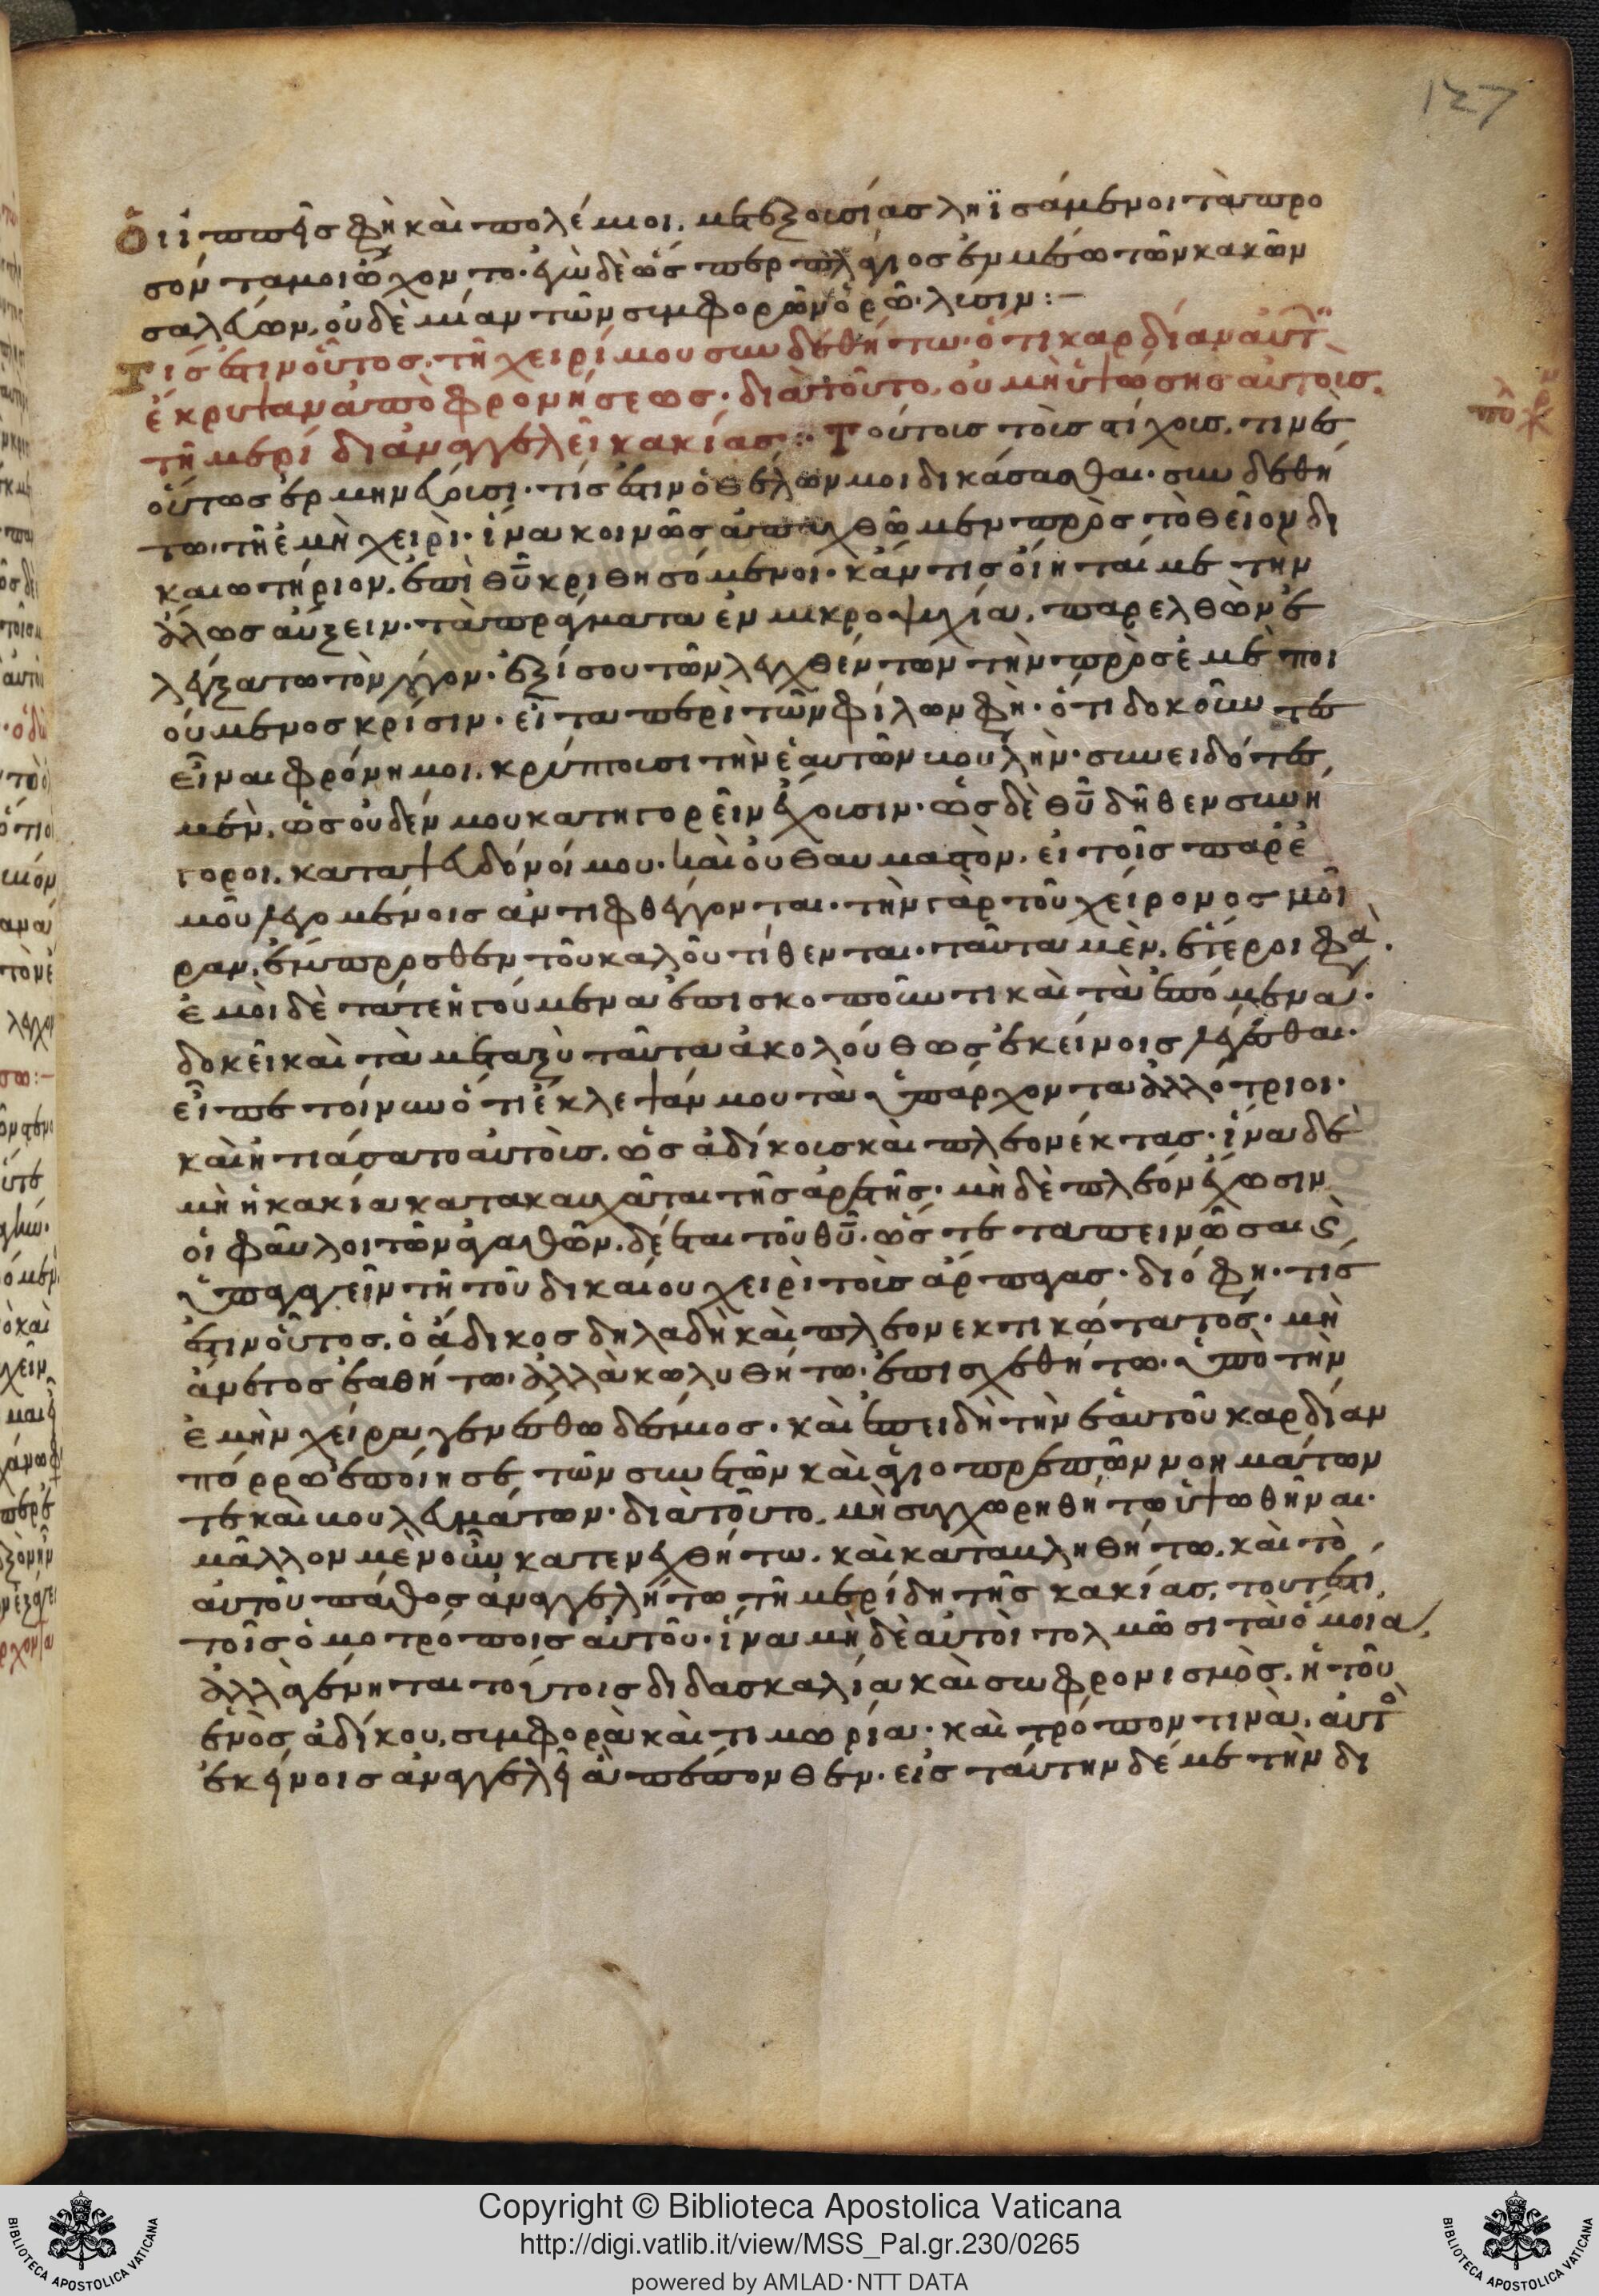 127
Οἱ ἱππεῖς φη καὶ πολέμιοι, μετ' ἐξουσίας ληϊσάμενοι τὰ προ
σόντα μοι ᾤχοντο· ἐγὼ δὲ ὥσπερ πλάγιος ἐν μέσω τῶν κακῶν
σαλεύων, οὐδὲ μίαν τῶν συμφορῶν ὁρῶ λύσιν :–
Τίς ἐστιν οὗτος· τῆ χειρί μου συνδεθήτω· ὅτι καρδίαν αὐτῶν
ἔκρυψαν ἀπὸ φρονήσεως· διὰ τοῦτο, οὐ μὴ ὑψώσης αὐτούς.
τῆ μερίδι ἀναγγελεῖ κακίας :· Τούτους τοὺς στίχους, τινὲς
οὕτως ἑρμηνεύουσι· τίς ἐστιν ὁ θέλων μοι δικάσασθαι· συνδεθή
τω τῆ ἐμῆ χειρὶ· ἵνα κοινῶς ἀπαχθῶμεν πρὸς τὸ θεῖον δι
καιωτήριον, ἐπὶ θῦ κριθησόμενοι· κἄν τις οἴηταί με την
άλλως αὔξειν τὰ πράγματα ἐν μικροψυχία, παρελθὼν ἐ
λεγξάτω τὸν λόγον· ἐξ ἴσου τῶν λεχθέντων τὴν πρὸς ἐμὲ ποι
ούμενος κρίσιν· εἶτα περὶ τῶν φίλων φη· ὅτι δοκοῦντες
εἶναι φρόνιμοι, κρύπτουσι τὴν ἑαυτῶν βουλήν· συνειδότες
μὲν, ὡς οὐδέν μου κατηγορεῖν ἔχουσιν· ὡς δὲ θῦ δῆθεν συνή
γοροι, καταψεύδονταί μου· καὶ οὐ θαυμαστὸν, εἰ τοῖς παρ' ἐ
μοῦ λεγομένοις ἀντιφθέγγονται· τὴν γὰρ τοῦ χείρονος μοῖ
ραν, ἔμπροσθεν τοῦ καλοῦ τίθενται· ταῦτα μὲν, ἕτεροι φα.
ἐμοὶ δὲ τά τε ἡγούμενα ἐπισκοποῦντι καὶ τὰ ἑπόμενα·
δοκεῖ καὶ τὰ μεταξὺ ταῦτα ἀκολούθως ἐκείνοις λέγεσθαι·
εἶπε τοίνυν ὅτι ἔκλεψάν μου τὰ ὑπάρχοντα ἀλλότριοι·
καὶ ἠτιάσατο αὐτοὺς, ὡς ἀδίκους καὶ πλεονέκτας· ἵνα δὲ
μὴ ἡ κακία κατακαυχᾶται τῆς ἀρετῆς· μὴ δὲ πλέον ἔχωσιν
οἱ φαῦλοι τῶν ἀγαθῶν, δέεται τοῦ θῦ, ὥστε ταπεινῶσαι καὶ
ὑπαγαγεῖν τῆ τοῦ δικαίου χειρὶ τοὺς ἅρπαγας· διό φη· τίς
ἐστιν οὗτος, ὁ ἄδικος δηλαδὴ καὶ πλεονεκτικώτατος· μὴ
ἄνετος ἐαθήτω· ἀλλὰ κωλυθήτω· ἐπισχεθήτω· ὑπὸ τὴν
ἐμὴν χεῖρα γενέσθω δέσμιος· καὶ ἐπειδὴ τὴν ἑαυτοῦ καρδίαν
πόρρω ἐποίησε τῶν συνετῶν καὶ ἁγιοπρεπῶν νοημάτων
τε καὶ βουλευμάτων· διὰ τοῦτο, μὴ συγχωρηθήτω ὑψωθῆναι·
μᾶλλον μὲν οὖν κατενεχθήτω, καὶ καταβληθήτω, καὶ τὸ
αὐτοῦ πάθος ἀναγγελήτω τῆ μερίδι τῆς κακίας, τουτέστι,
τοῖς ὁμοτρόποις αὐτοῦ· ἵνα μὴ δὲ αὐτοὶ τολμῶσι τὰ ὅμοια,
ἀλλὰ γένηται τούτοις διδασκαλία καὶ σωφρονισμὸς, ἡ τοῦ
ἑνὸς ἀδίκου, συμφορὰ καὶ τιμωρία· καὶ τρόπον τινὰ, αὐτὸς
ἐκείνοις ἀναγγελεῖ ἃ πέπονθεν· εἰς ταύτην δέ με τὴν δι
Copyright © Biblioteca Apostolica Vaticana
http://digi.vatlib.it/view/MSS_Pal.gr.230/0265
powered by AMLAD·NTT DATA
BIBLIOTECA APOSTOLICA VATICANA
BIBLIOTECA APOSTOLICA VATICANA